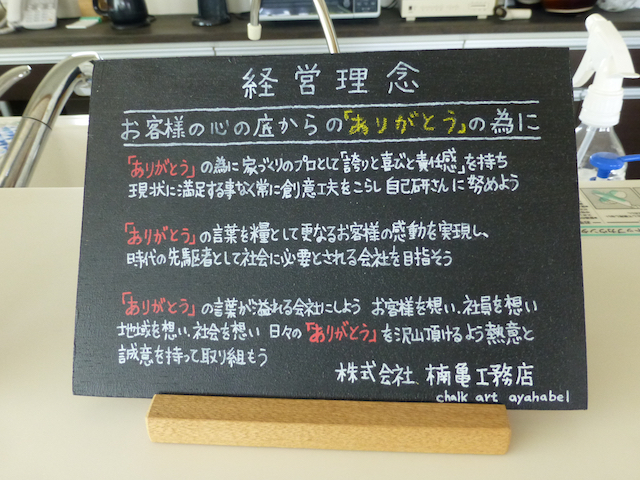 経営理念
お客様の心の底からの「ありがとう」の為に
「ありがとう」の為に家づくりのプロとして「誇りと喜びと責任感」を持ち
現状に満足する事なく常に創意工夫をこらし自己研さんに努めよう
「ありがとう」の言葉を糧として更なるお客様の感動を実現し、
時代の先駆者として社会に必要とされる会社を目指そう
「ありがとう」の言葉が溢れる会社にしよう お客様を想い、社員を想い
地域を想い、社会を想い 日々の「ありがとう」を沢山頂けるよう熱意と
誠意を持って取り組もう
株式会社 楠亀工務店
chalk art ayahabel